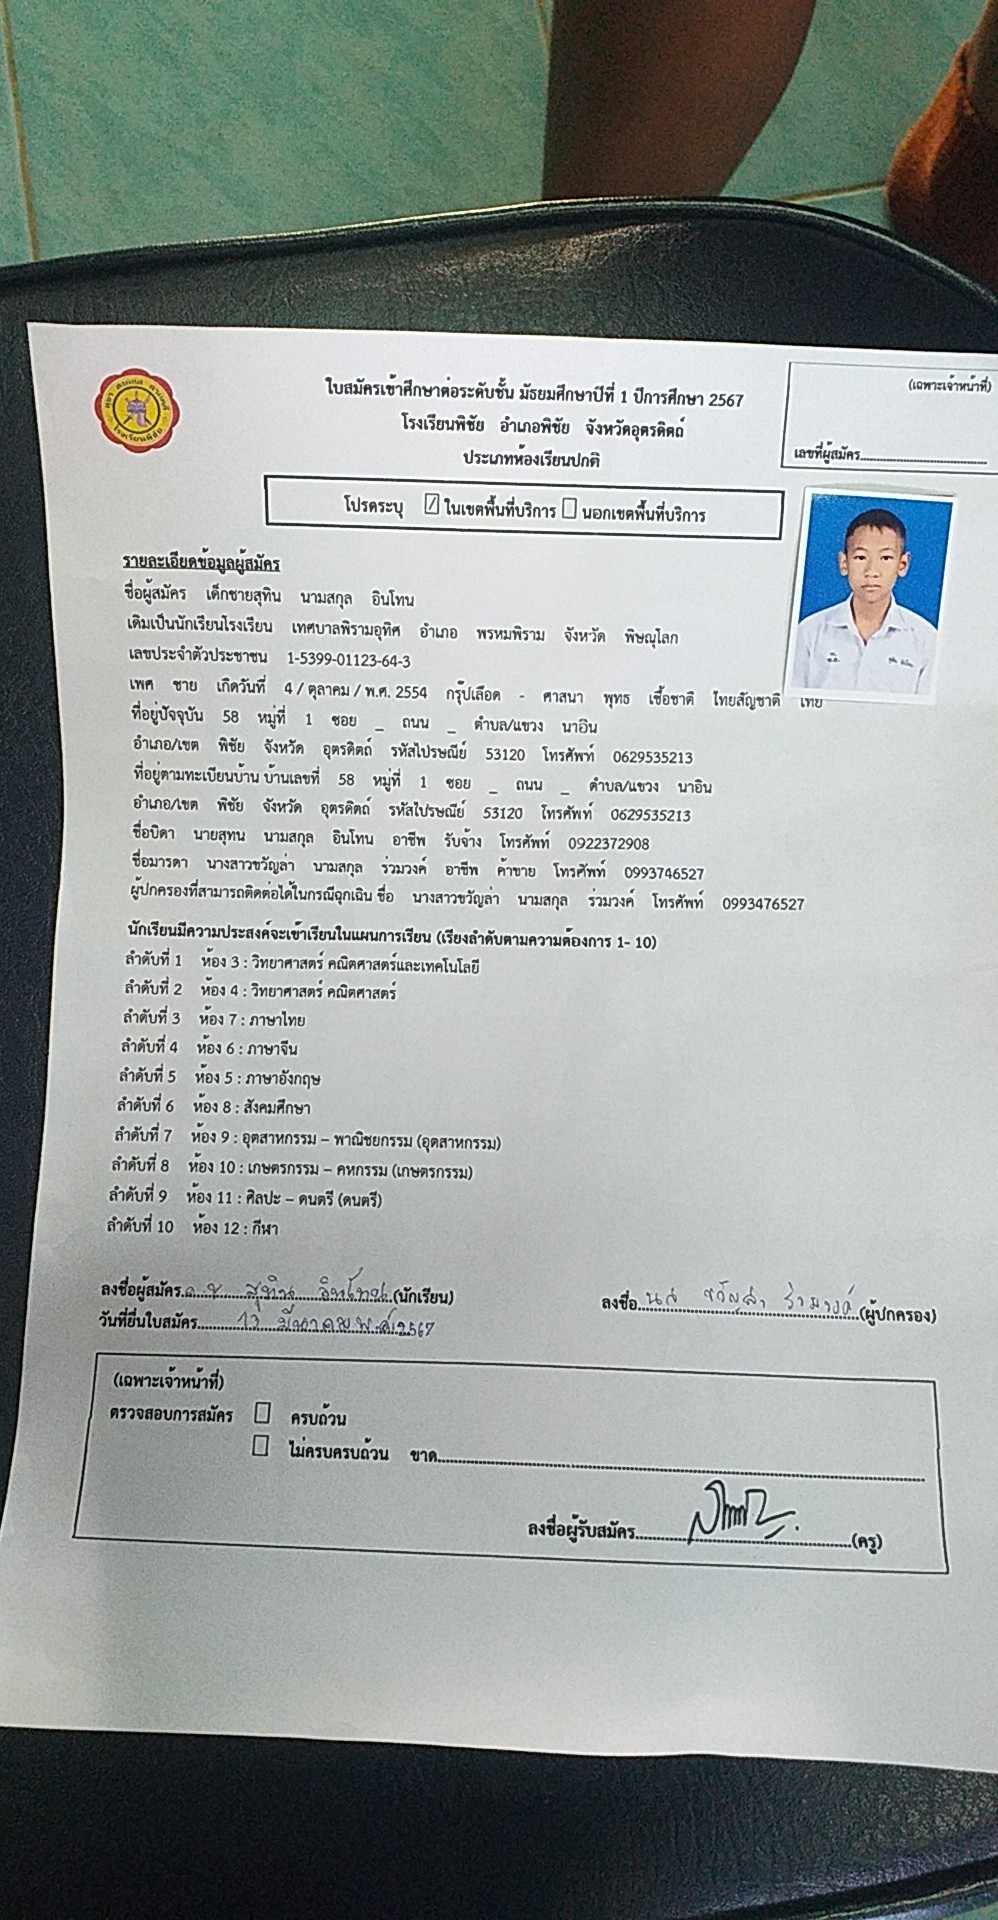 ใบสมัครเข้าศึกษาต่อระดับชั้น มัธยมศึกษาปีที่ 1 ปีการศึกษา 2567
โรงเรียนพิชัย อำเภอพิชัย จังหวัดอุตรดิตถ์
ประเภทห้องเรียนปกติ
(เฉพาะเจ้าหน้าที่)
เลขที่ผู้สมัคร
โรงเรียนพิชัย
โปรดระบุ ในเขตพื้นที่บริการ นอกเขตพื้นที่บริการ
รายละเอียดข้อมูลผู้สมัคร
ชื่อผู้สมัคร เด็กชายสุทิน นามสกุล อินโทน
เดิมเป็นนักเรียนโรงเรียน เทศบาลพิรามอุทิศ อำเภอ พรหมพิราม จังหวัด พิษณุโลก
เลขประจำตัวประชาชน 1-5399-01123-64-3
เพศ ชาย เกิดวันที่ 4 / ตุลาคม / พ.ศ. 2554 กรุ๊ปเลือด - ศาสนา พุทธ เชื้อชาติ ไทยสัญชาติ ไทย
ที่อยู่ปัจจุบัน 58 หมู่ที่ 1 ซอย _ ถนน _ ตำบล/แขวง นาอิน
อำเภอ/เขต พิชัย จังหวัด อุตรดิตถ์ รหัสไปรษณีย์ 53120 โทรศัพท์ 0629535213
ที่อยู่ตามทะเบียนบ้าน บ้านเลขที่ 58 หมู่ที่ 1 ซอย _ ถนน _ ตำบล/แขวง นาอิน
อำเภอ/เขต พิชัย จังหวัด อุตรดิตถ์ รหัสไปรษณีย์ 53120 โทรศัพท์ 0629535213
ชื่อบิดา นายสุทน นามสกุล อินโทน อาชีพ รับจ้าง โทรศัพท์ 0922372908
ชื่อมารดา นางสาวขวัญล่า นามสกุล ร่วมวงค์ อาชีพ ค้าขาย โทรศัพท์ 0993746527
ผู้ปกครองที่สามารถติดต่อได้ในกรณีฉุกเฉิน ชื่อ นางสาวขวัญล่า นามสกุล ร่วมวงค์ โทรศัพท์ 0993476527
นักเรียนมีความประสงค์จะเข้าเรียนในแผนการเรียน (เรียงลำดับตามความต้องการ 1- 10)
ลำดับที่ 1 ห้อง 3 : วิทยาศาสตร์ คณิตศาสตร์และเทคโนโลยี
ลำดับที่ 2 ห้อง 4 : วิทยาศาสตร์ คณิตศาสตร์
ลำดับที่ 3 ห้อง 7 : ภาษาไทย
ลำดับที่ 4 ห้อง 6 : ภาษาจีน
ลำดับที่ 5 ห้อง 5 : ภาษาอังกฤษ
ลำดับที่ 6 ห้อง 8 : สังคมศึกษา
ลำดับที่ 7 ห้อง 9 : อุตสาหกรรม – พาณิชยกรรม (อุตสาหกรรม)
ลำดับที่ 8 ห้อง 10 : เกษตรกรรม – คหกรรม (เกษตรกรรม)
ลำดับที่ 9 ห้อง 11 : ศิลปะ – ดนตรี (ดนตรี)
ลำดับที่ 10 ห้อง 12 : กีฬา
ลงชื่อผู้สมัคร ด.ช. สุทิน อินโทน (นักเรียน)
ลงชื่อ นส ขวัญล่า ร่วมวงค์ (ผู้ปกครอง)
วันที่ยื่นใบสมัคร มีนาคม พ.ศ. 2567
(เฉพาะเจ้าหน้าที่)
ตรวจสอบการสมัคร ครบถ้วน
ไม่ครบครบถ้วน ขาด
ลงชื่อผู้รับสมัคร (ครู)